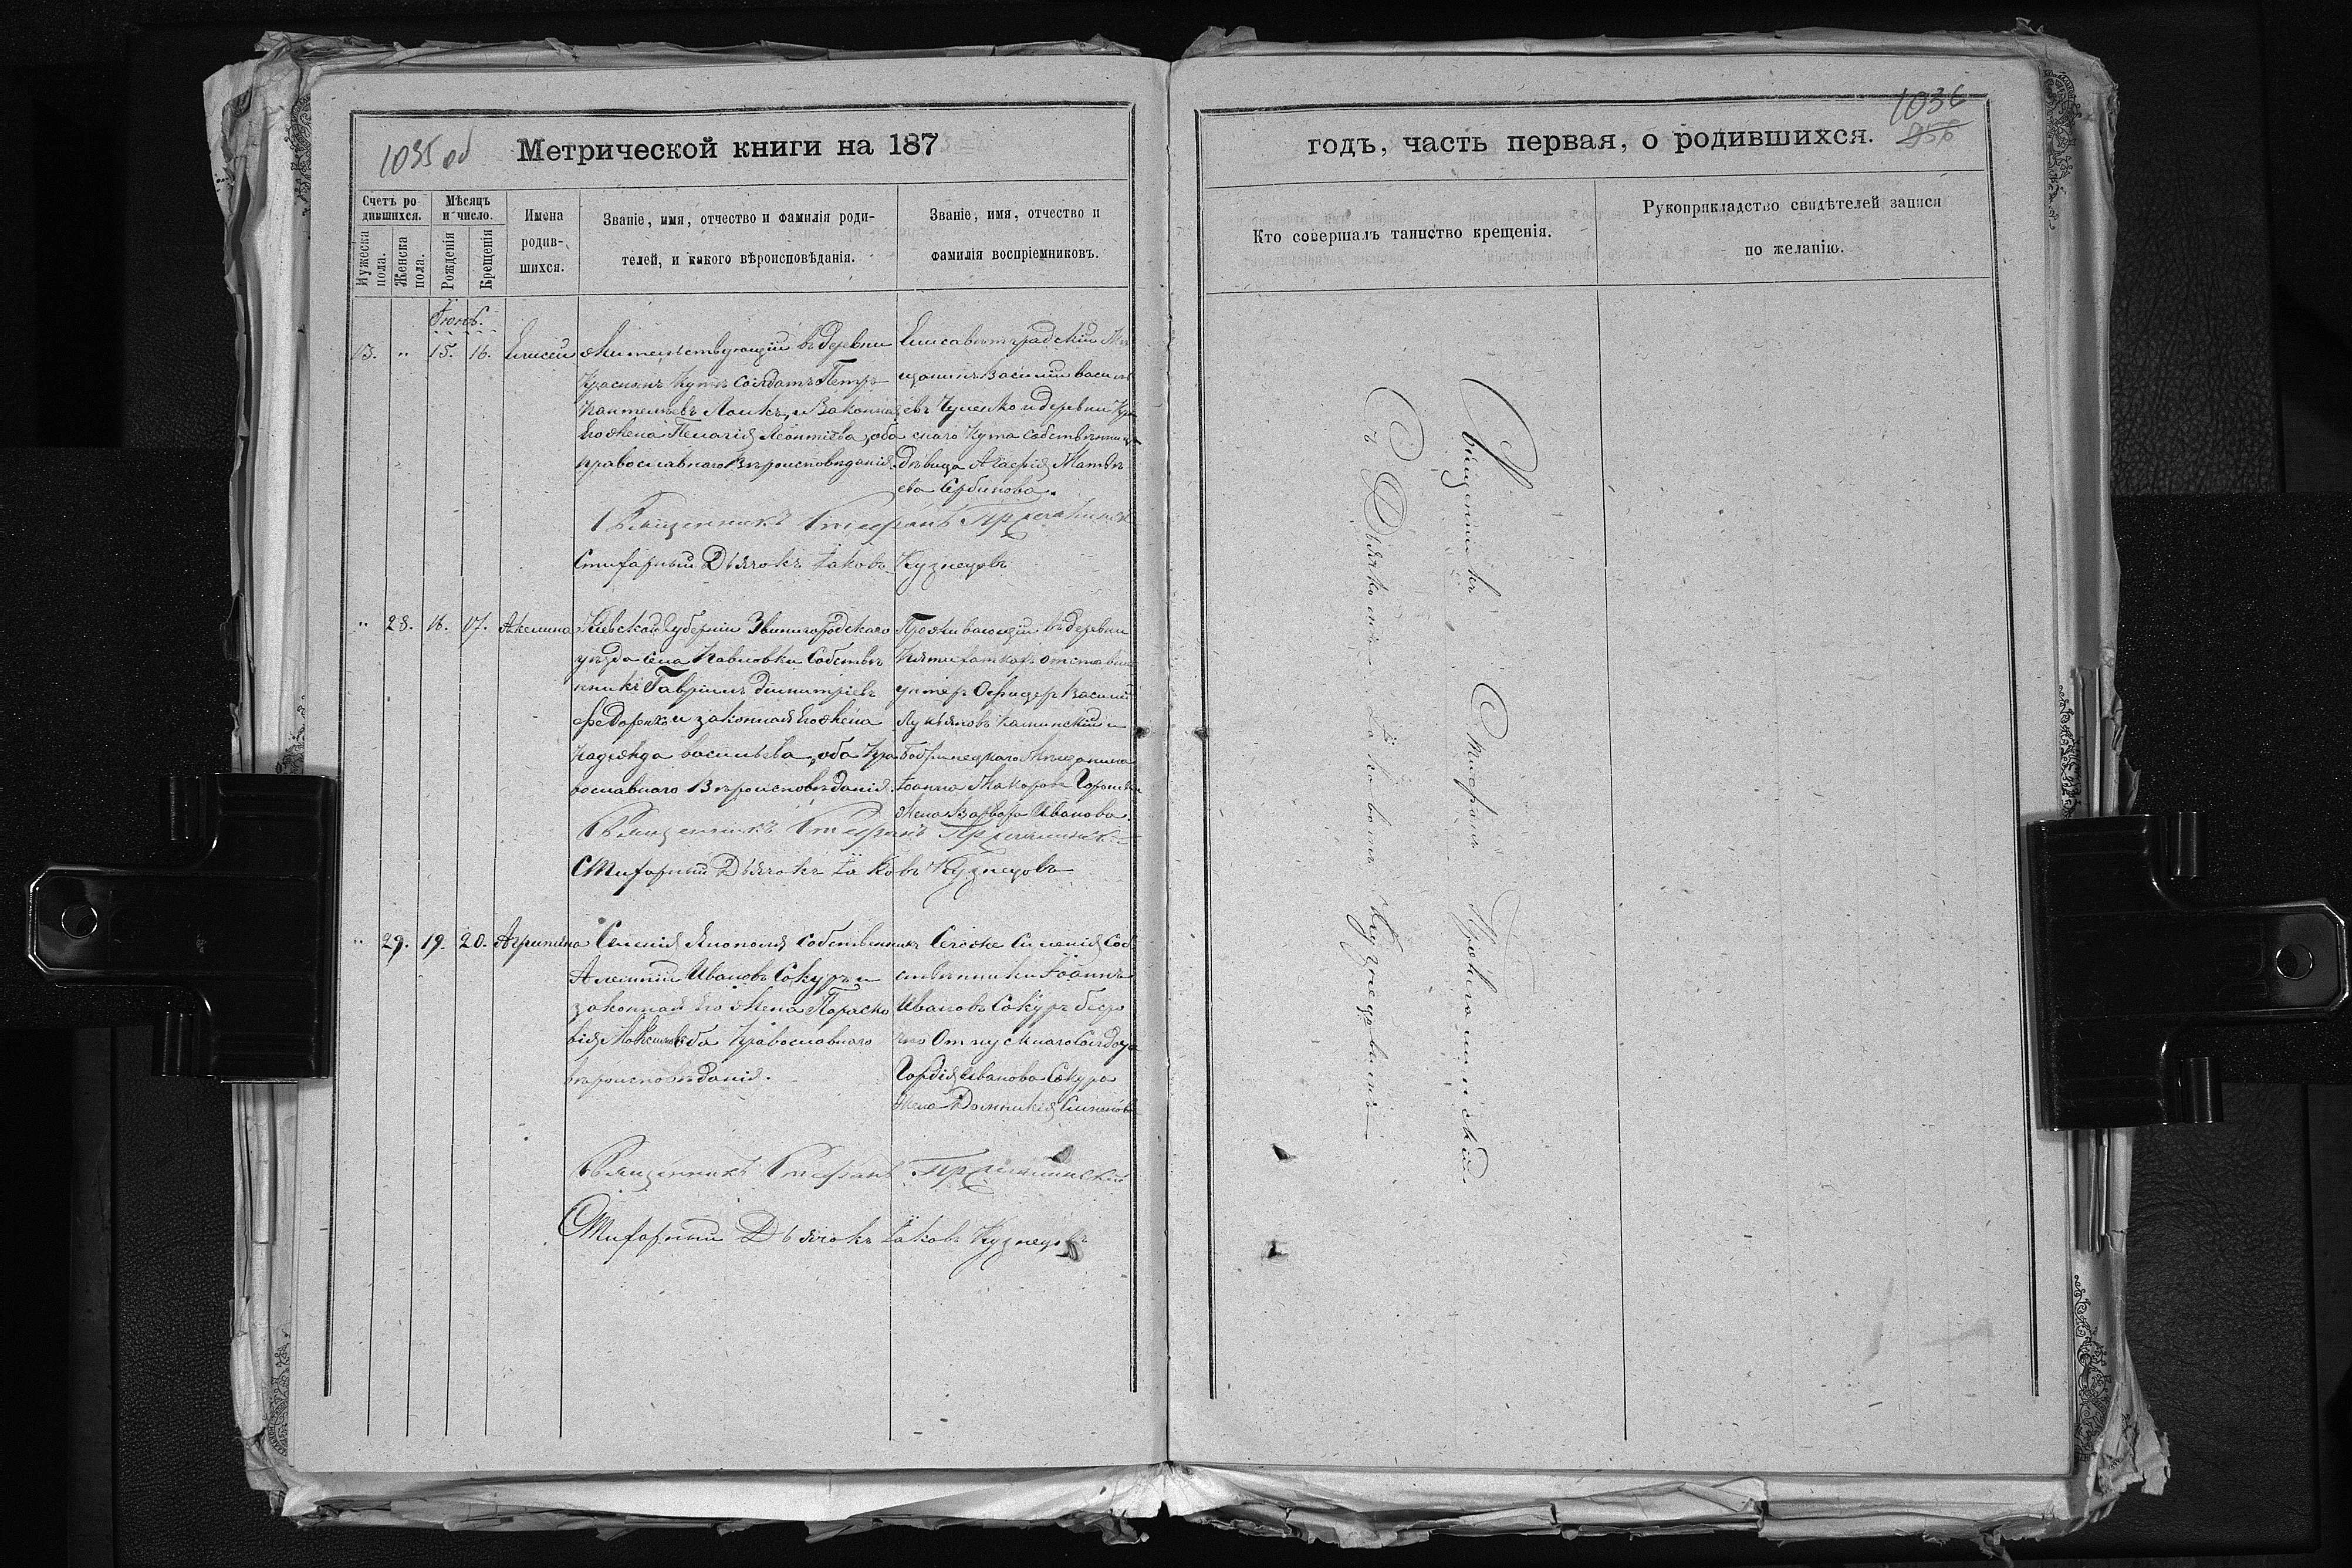 1035 об
Метрической книги на 187
Счетъ ро-
дившихся.
Мужеска пола.
Женска пола.
Мѣсяцъ
и число.
Рожденія
Крещенія
Имена
родив-
шихся.
Званіе, имя, отчество и фамилія роди-
телей, и какого вѣроисповѣданія.
Званіе, имя, отчество и
фамилія воспріемниковъ.
Іюнь.
13. " 15. 16. Елисей
жительствующій въ деревни
Красномъ Кутѣ солдатъ Петръ
и Законная
Его жена Пелагія Леонтіева, оба
православнаго Вѣроисповѣданія.
Елисаветградскій Мѣ
щанинъ Василій Василь
евъ и деревни Кра
снаго Кута собственница
дѣвица Агафія Матвѣ
ева Сербинова.
Священникъ Стефанъ
Стихарный Дьячокъ Іаковъ Кузнецовъ
" 28. 16. 17. Акелина
Кіевской Губерніи Звинигородскаго
уѣзда села Павловки Собствен
никъ Гавріилъ Димитріевъ
Федоренко и законная Его жена
Надежда Васильева, оба Пра
вославнаго Вѣроисповѣданія.
Проживающій въ деревни
отставной
унтеръ Офицеръ Василій
Лукьяновъ Каминскій и
Бобринецкаго Мѣщанина
Іоанна Макарова
жена Варвара Иванова.
Священникъ Стефанъ
Стихарный Дьячокъ Іаковъ Кузнецовъ
" 29. 19. 20. Агрипина
Селенія Собственникъ
Алексѣй Ивановъ Сокуръ и
законная Его жена Параско
вія оба Православнаго
вѣроисповѣданія.
Тогоже Селенія Соб
ственники Іоаннъ
Ивановъ Сокуръ безсро
чно Отпускнаго Солдата
Гордія Иванова Сокура
жена Домникія
Священникъ Стефанъ
Стихарный Дьячокъ Іаковъ Кузнецовъ
1036
956
годъ, часть первая, о родившихся.
Кто совершалъ таинство крещенія.
Рукоприкладство свидѣтелей записи
по желанію.
Священникъ Стефанъ
съ Дьячкомъ Іаковомъ Кузнецовымъ